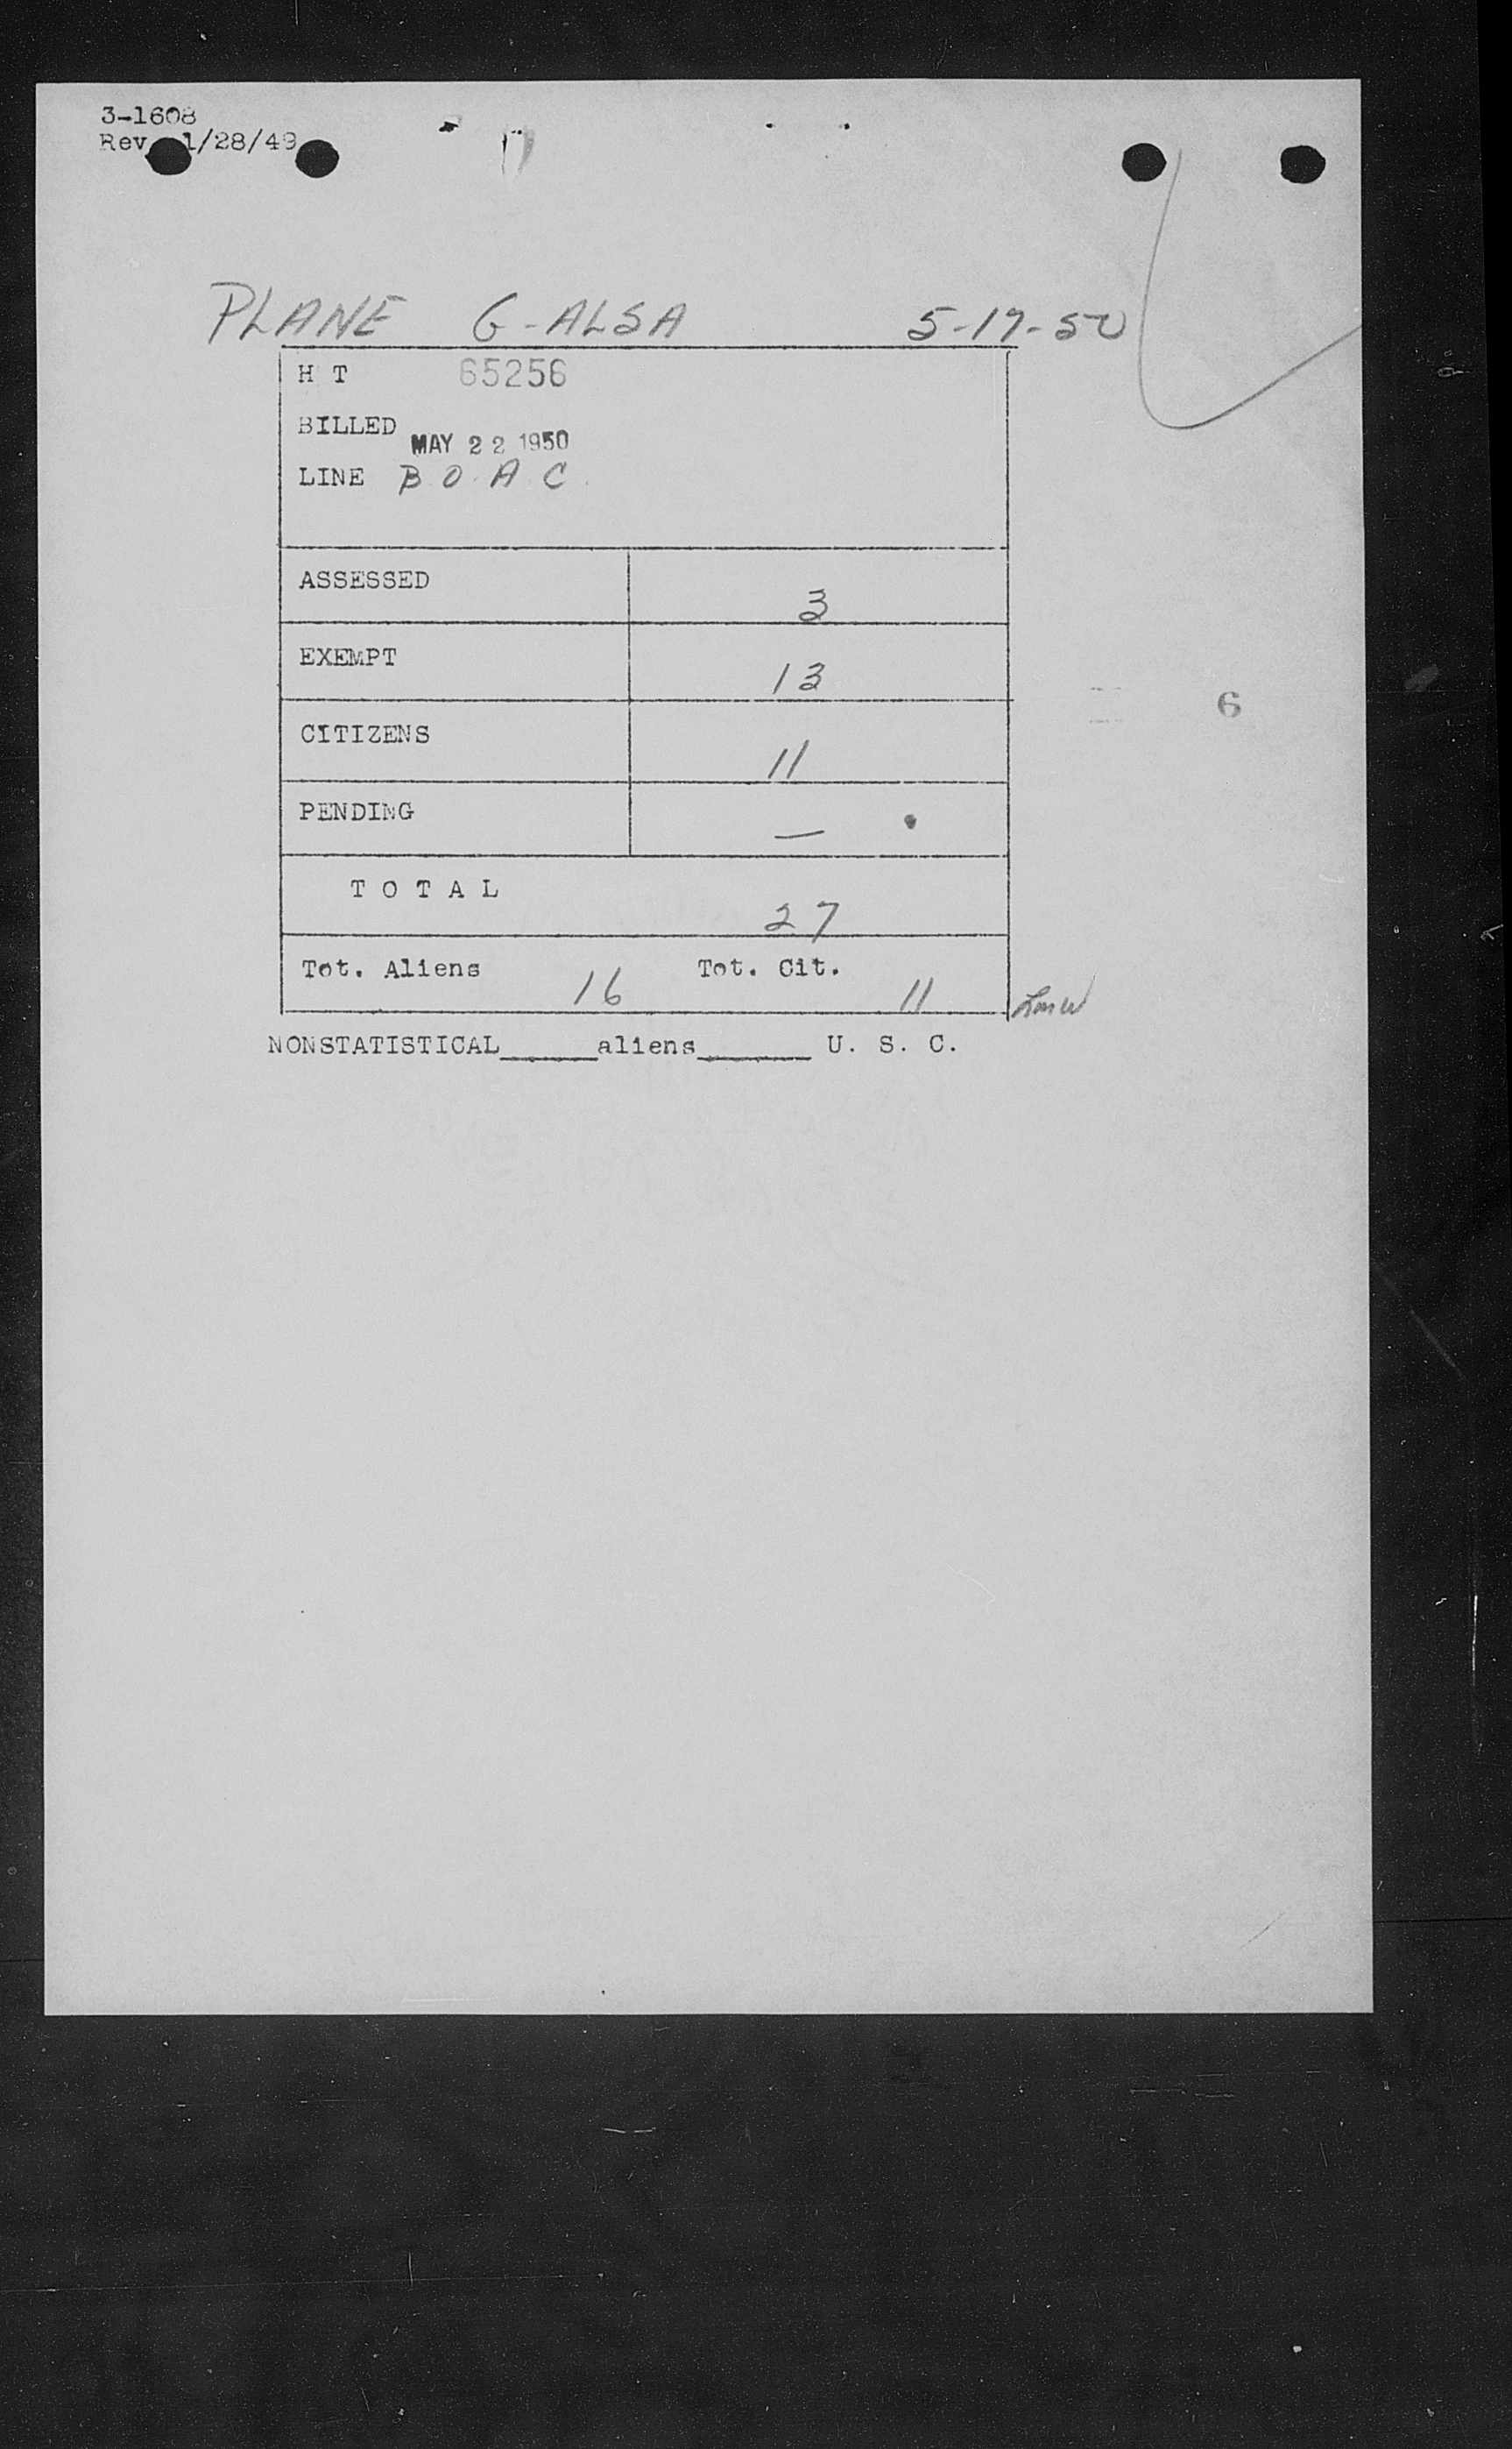 3-1608
Rev. 1/28/49
PLANE G-ALSA 5-17-50
H T 65256
BILLED MAY 22 1950
LINE B O A C
ASSESSED 3
EXEMPT 13
CITIZENS 11
6
PENDING —
T O T A L 27
Tot. Aliens 16 Tot. Cit. 11
NONSTATISTICAL_____aliens______ U. S. C.